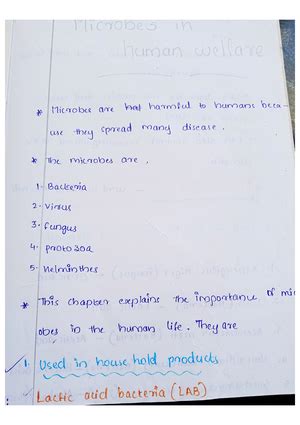 Microbes in
human welfare
* Microbes are had harmful to humans beca-
use they spread many disease.
* The microbes are,
1- Bacteria
2- Virus
3- fungus
4- protozoa
5- Helminthes
* This chapter explains the importance of mic
obes in the human life. They are
1. Used in house hold products
Lactic acid bacteria (LAB)